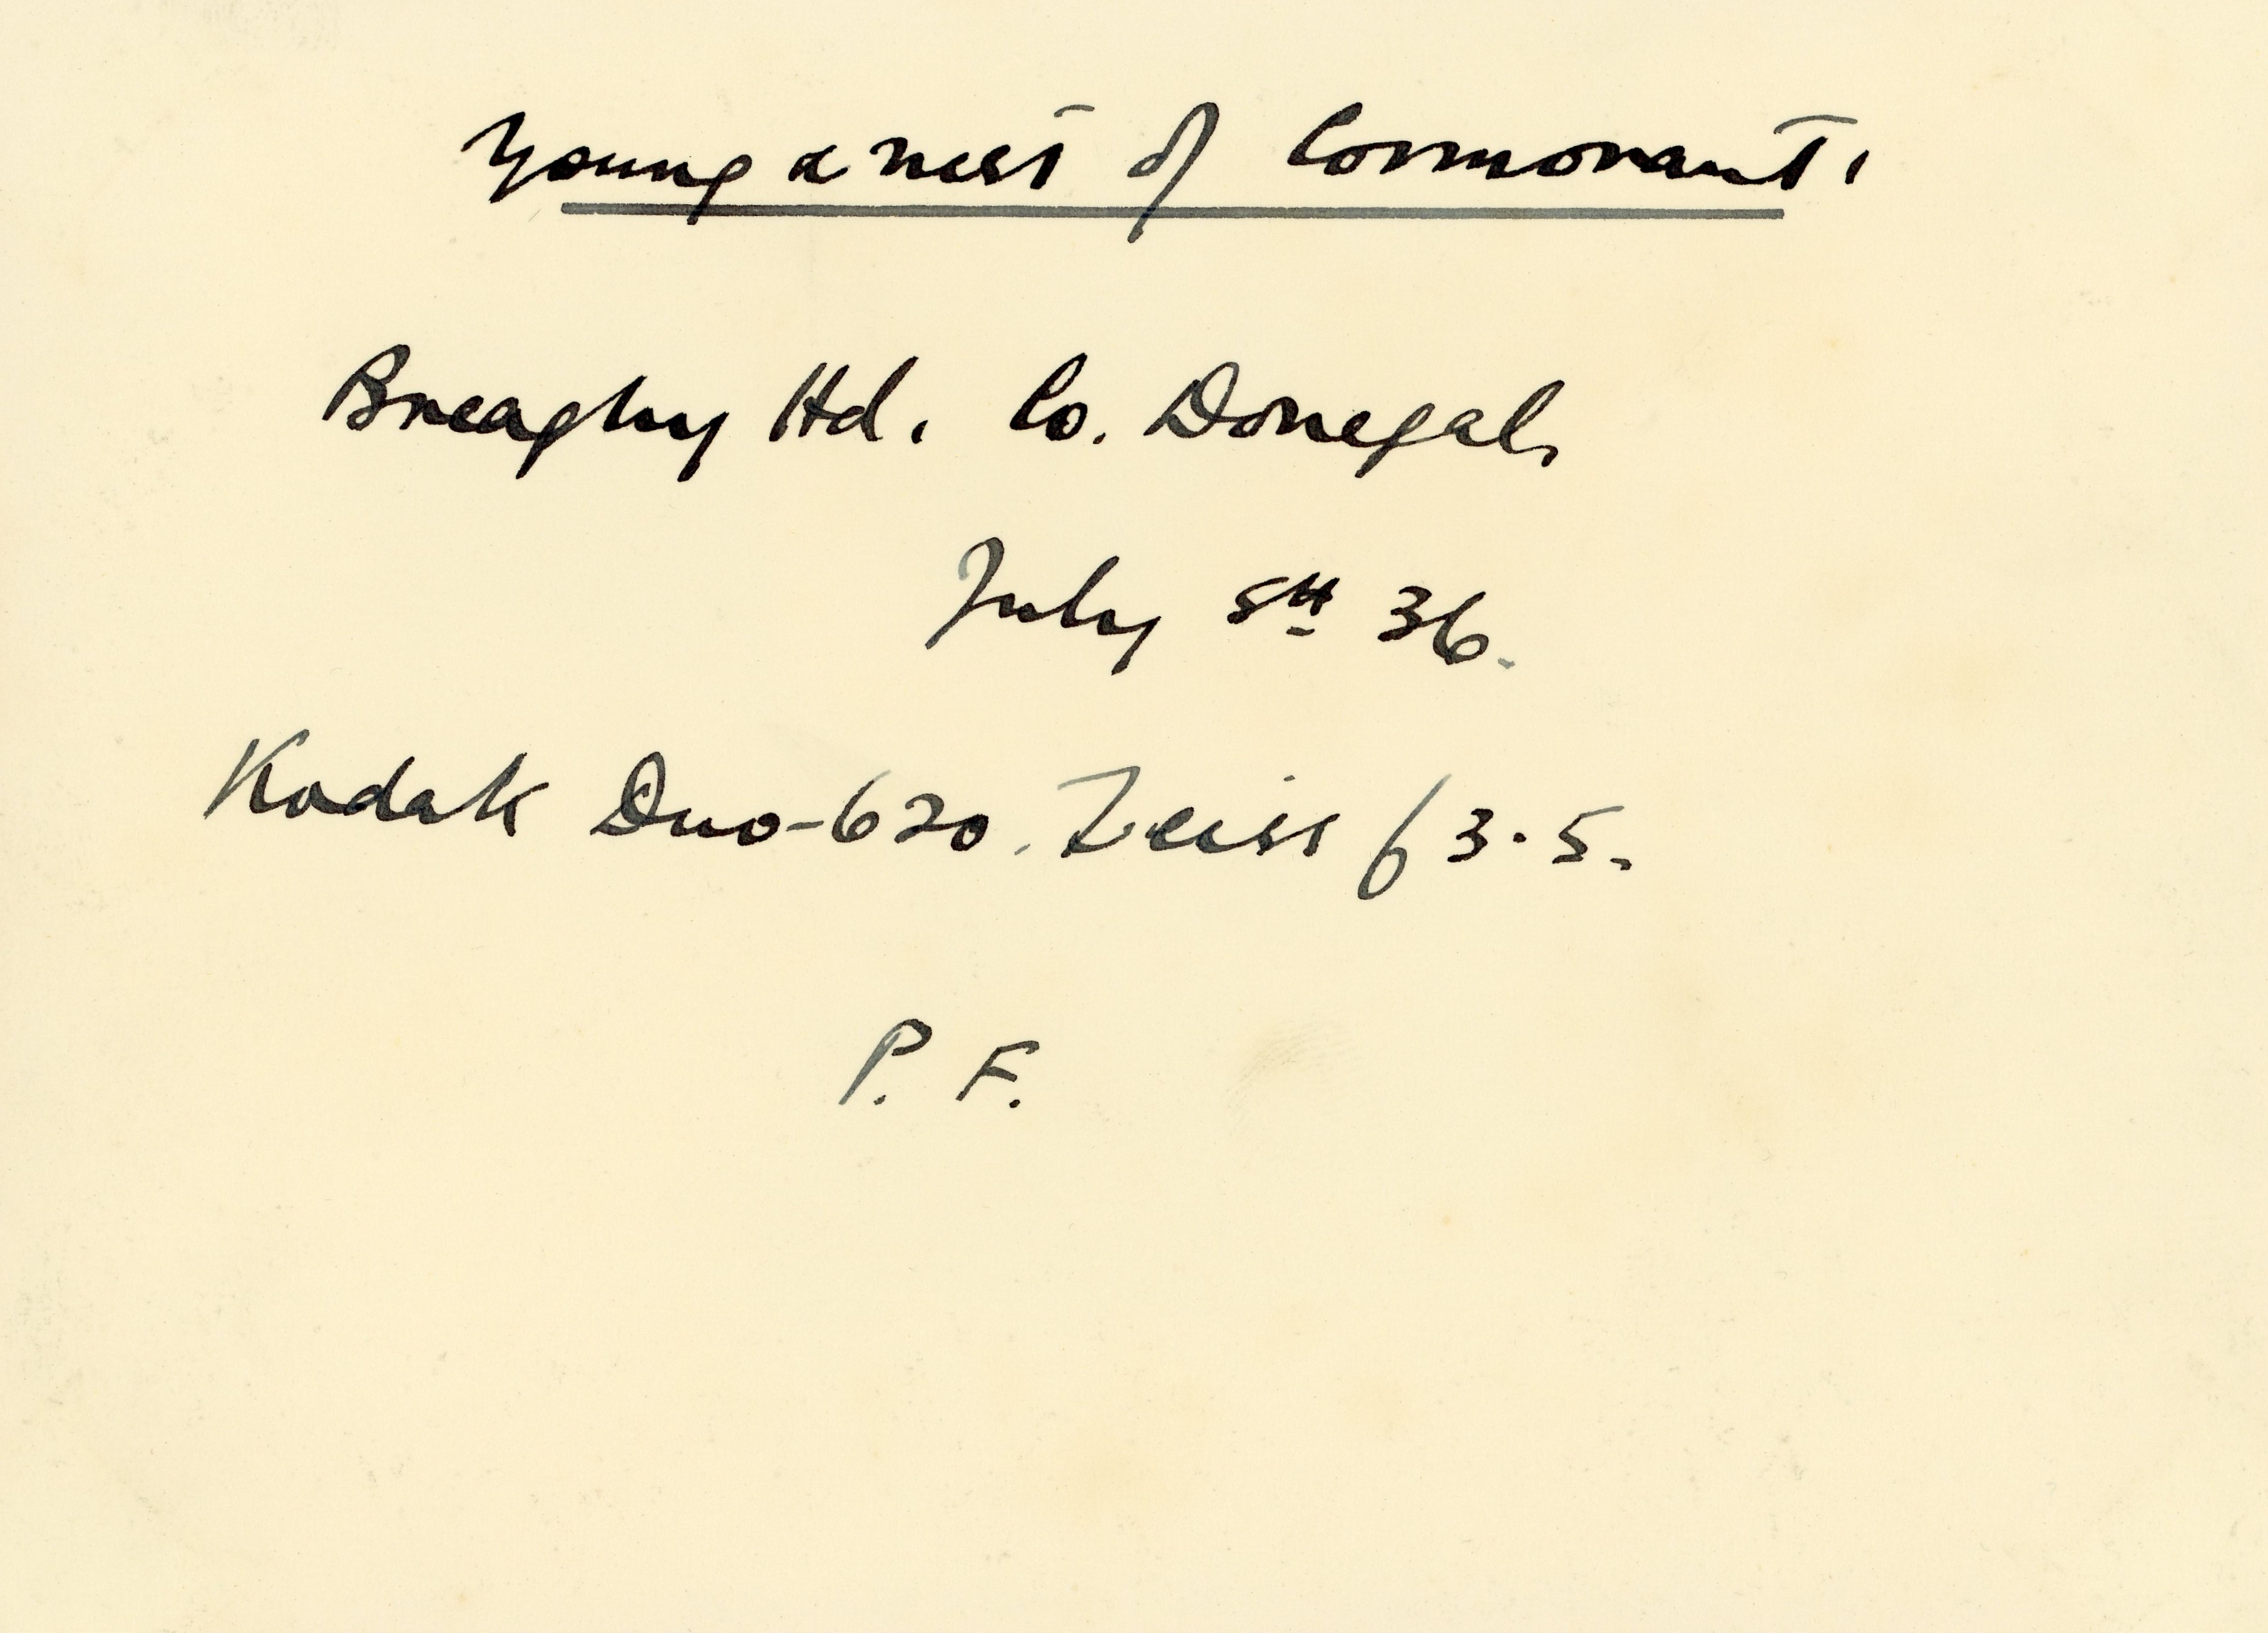 Young & nest of Cormorant.
Breaghy Hd. Co. Donegal.
July 5th 36.
Kodak Duo-620. Zeiss f3·5.
P. F.